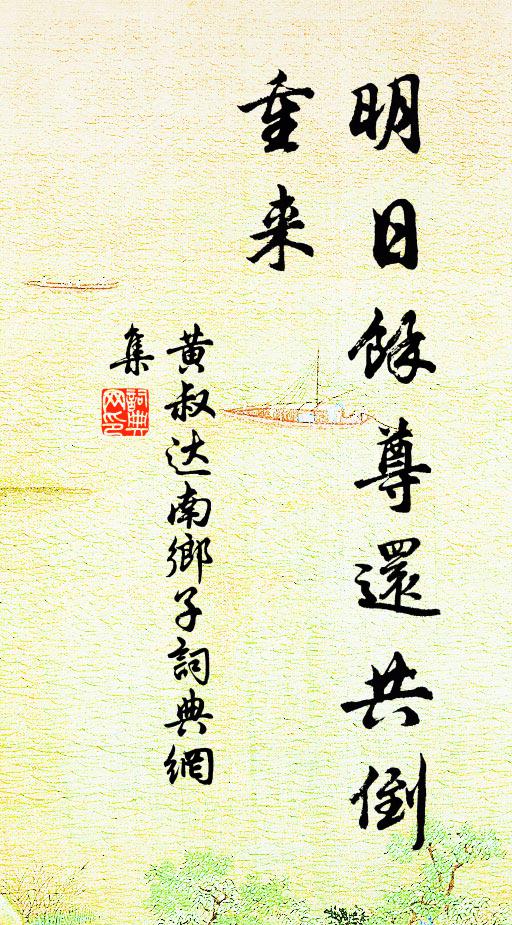 明日餘尊還共倒
重来
黄叔达南鄉子詞典網
集
詞典
网印